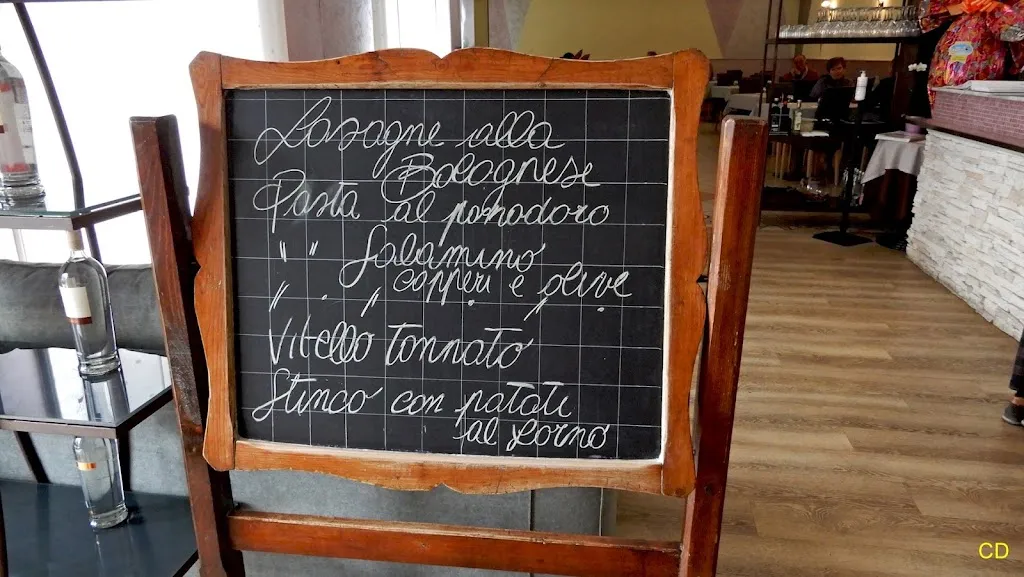 Lasagne alla
Bolognese
Pasta al pomodoro
" " Salamino
capperi e olive
Vitello tonnato
Stinco con patate
al forno
CD